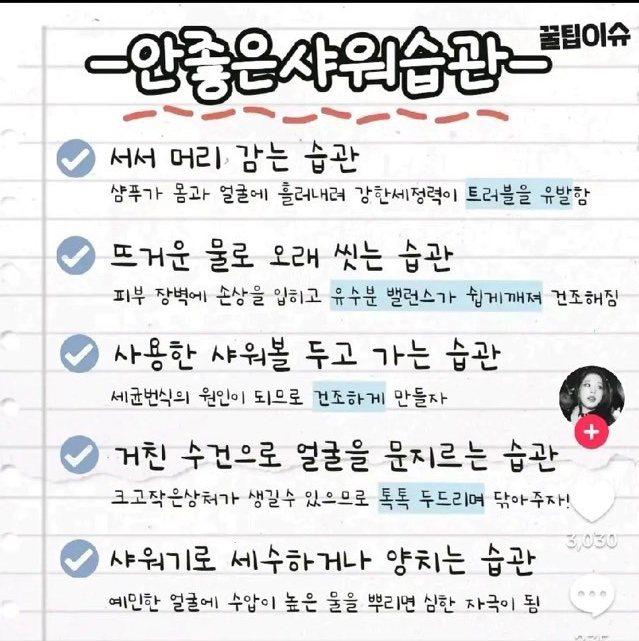 꿀팁이슈
안좋은샤워습관
서서 머리 감는 습관
샴푸가 몸과 얼굴에 흘러내려 강한세정력이 트러블을 유발함
뜨거운 물로 오래 씻는 습관
피부 장벽에 손상을 입히고 유수분 밸런스가 쉽게깨져 건조해짐
사용한 샤워볼 두고 가는 습관
세균번식의 원인이 되므로 건조하게 만들자
거친 수건으로 얼굴을 문지르는 습관
크고작은상처가 생길수 있으므로 톡톡 두드리며 닦아주자!
3,030
샤워기로 세수하거나 양치는 습관
예민한 얼굴에 수압이 높은 물을 뿌리면 심한 자극이 됨